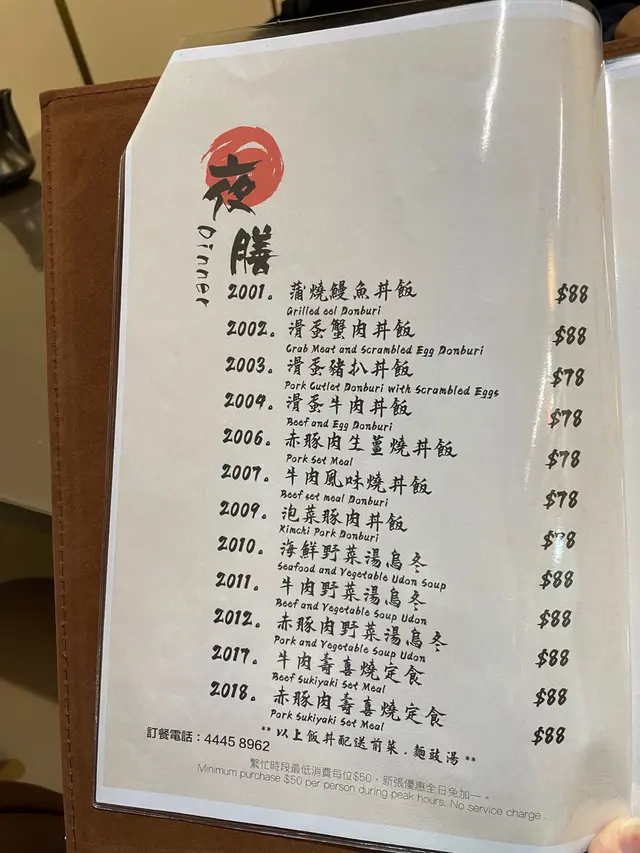 夜膳
Dinner
2001. 蒲燒鰻魚丼飯 $88
Grilled eel Donburi
2002. 滑蛋蟹肉丼飯 $88
Crab Meat and Scrambled Egg Donburi
2003. 滑蛋豬扒丼飯 $78
Pork Cutlet Donburi with Scrambled Eggs
2004. 滑蛋牛肉丼飯 $78
Beef and Egg Donburi
2006. 赤豚肉生薑燒丼飯 $78
Pork Set Meal
2007. 牛肉風味燒丼飯 $78
Beef set meal Donburi
2009. 泡菜豚肉丼飯 $78
Kimchi Pork Donburi
2010. 海鮮野菜湯烏冬 $88
Seafood and Vegetable Udon Soup
2011. 牛肉野菜湯烏冬 $88
Beef and Vegetable Soup Udon
2012. 赤豚肉野菜湯烏冬 $88
Pork and Vegetable Soup Udon
2017. 牛肉壽喜燒定食 $88
Beef Sukiyaki Set Meal
2018. 赤豚肉壽喜燒定食 $88
Pork Sukiyaki Set Meal
**以上飯丼配送前菜.麵豉湯**
訂餐電話：4445 8962
繁忙時段最低消費每位$50，新張優惠全日免加一。
Minimum purchase $50 per person during peak hours. No service charge.